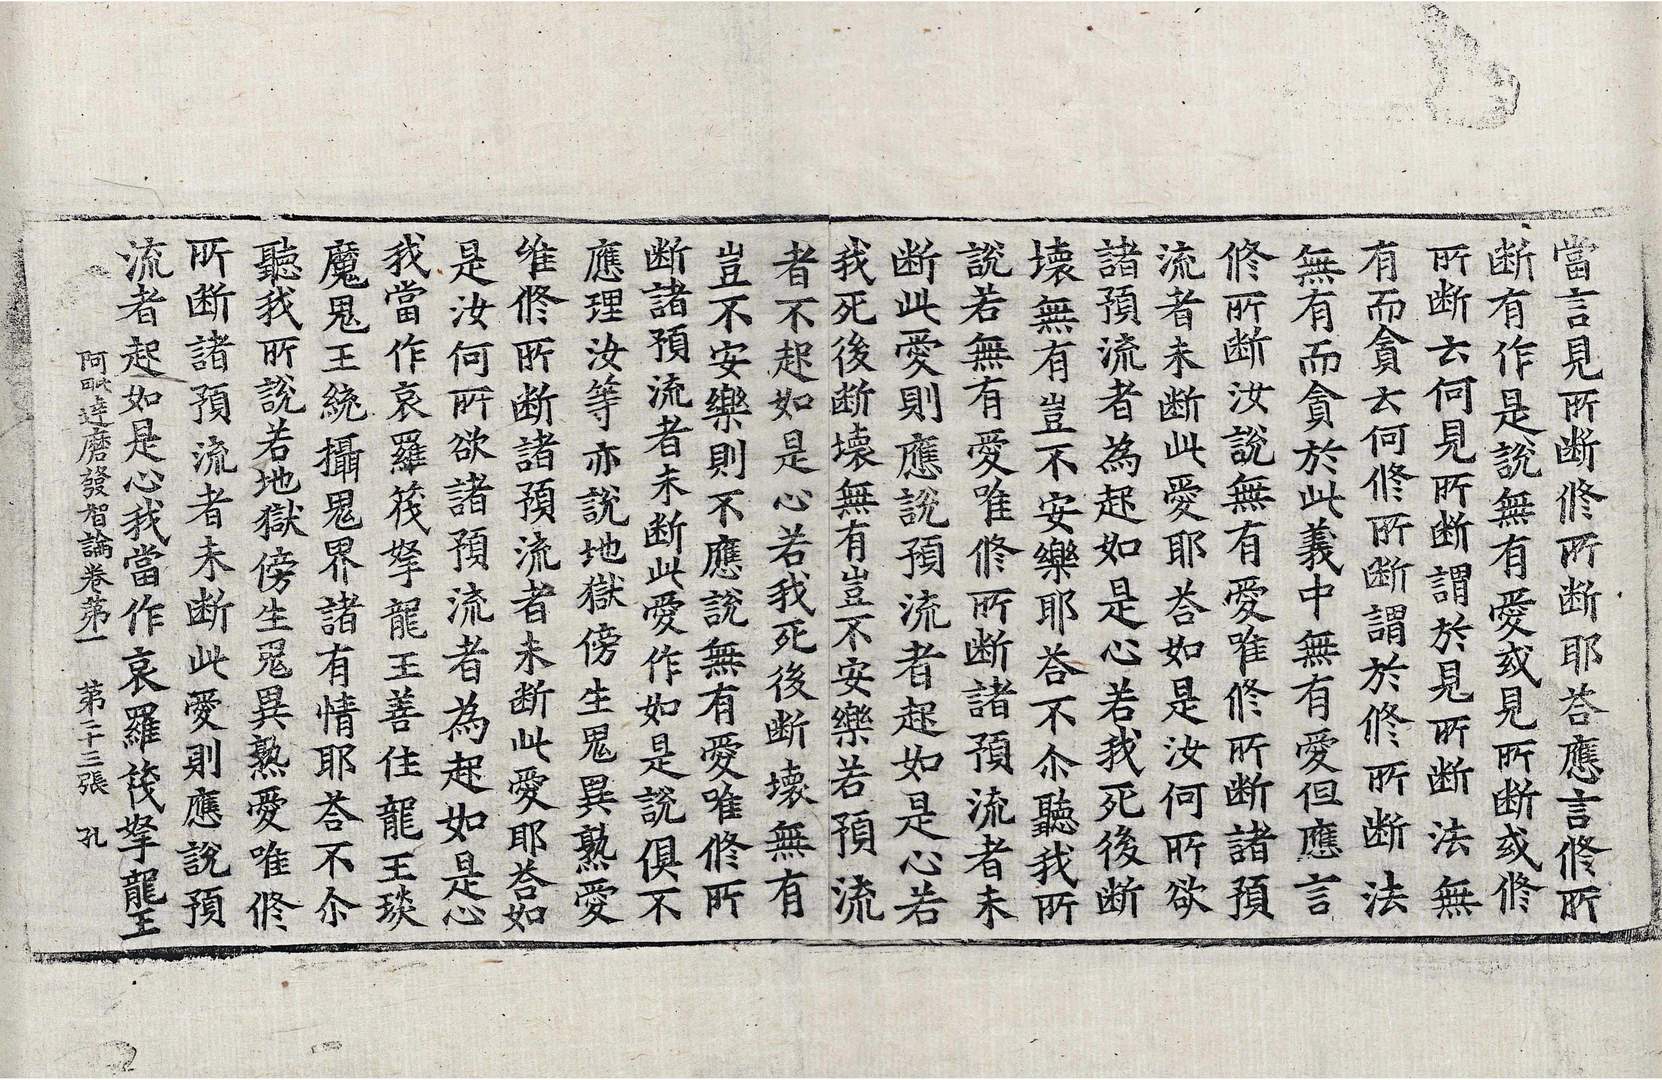 當言見所斷修所斷耶荅應言修所
斷有作是說無有愛或見所斷或修
所斷云何見所斷謂於見所斷法無
有而貪云何修所斷謂於修所斷法
無有而貪於此義中無有愛但應言
修所斷汝說無有愛唯修所斷諸預
流者未斷此愛耶荅如是汝何所欲
諸預流者為起如是心若我死後斷
壞無有豈不安樂耶荅不尒聽我所
說若無有愛唯修所斷諸預流者未
斷此愛則應說預流者起如是心若
我死後斷壞無有豈不安樂若預流
者不起如是心若我死後斷壞無有
豈不安樂則不應說無有愛唯修所
斷諸預流者未斷此愛作如是說俱不
應理汝等亦說地獄傍生鬼異熟愛
唯修所斷諸預流者未斷此愛耶荅如
是汝何所欲諸預流者為起如是心
我當作哀羅筏拏龍王善住龍王琰
魔鬼王統攝鬼界諸有情耶荅不尒
聽我所說若地獄傍生鬼異熟愛唯修
所斷諸預流者未斷此愛則應說預
流者起如是心我當作哀羅筏拏龍王
阿毗達磨發智論卷第一 第二十三張 孔